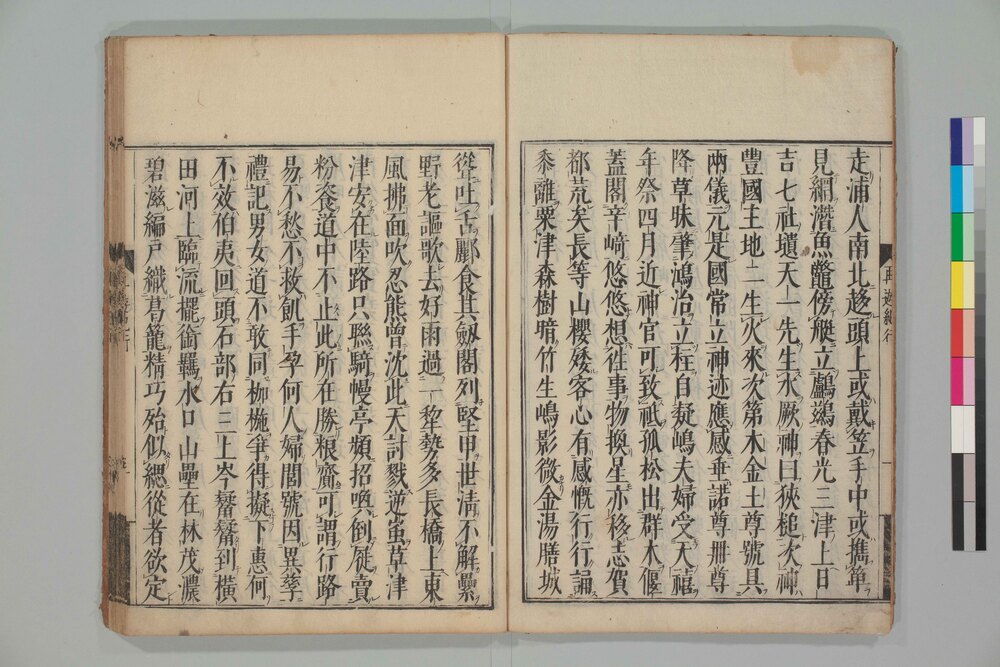 走浦人南北趍頭上或戴笠手中或擕簞
見網濳魚鼈傍艇立鸕鷀春光三津上日
吉七社壝天一先生水厥神曰狹槌次神
豊國主地二生火來次第木金土尊號具
兩儀元是國常立神迹應感垂諾尊冊尊
降草昧肇鴻治立程自凝嶋夫婦受天禧
年祭四月近神官可致祗孤松出群木偃
蓋閣辛﨑悠悠想徃事物換星亦移志賀
都荒矣長等山櫻矮客心有感慨行行誦
黍離粟津森樹暗竹生嶋影微金湯膳城
再遊紀行
從吐舌酈食其劔閣列堅甲世淸不解纍
野老謳歌去好雨過一犂勢多長橋上東
風拂面吹忍熊曾沈此天討戮逆蚩草津
津安在陸路只聮騎幔亭頻招喚倒屣賣
粉餈道中不止此所在勝粮齎可謂行路
易不愁不救飢手孕何人婦閭號因異孳
禮記男女道不敢同枷椸爭得擬下惠何
不效伯夷回頭石部右三上岑鬠鬠到橫
田河上臨流擺銜羈水口山壘在林茂濃
碧滋編戸織葛籠精巧殆似緦從者欲定